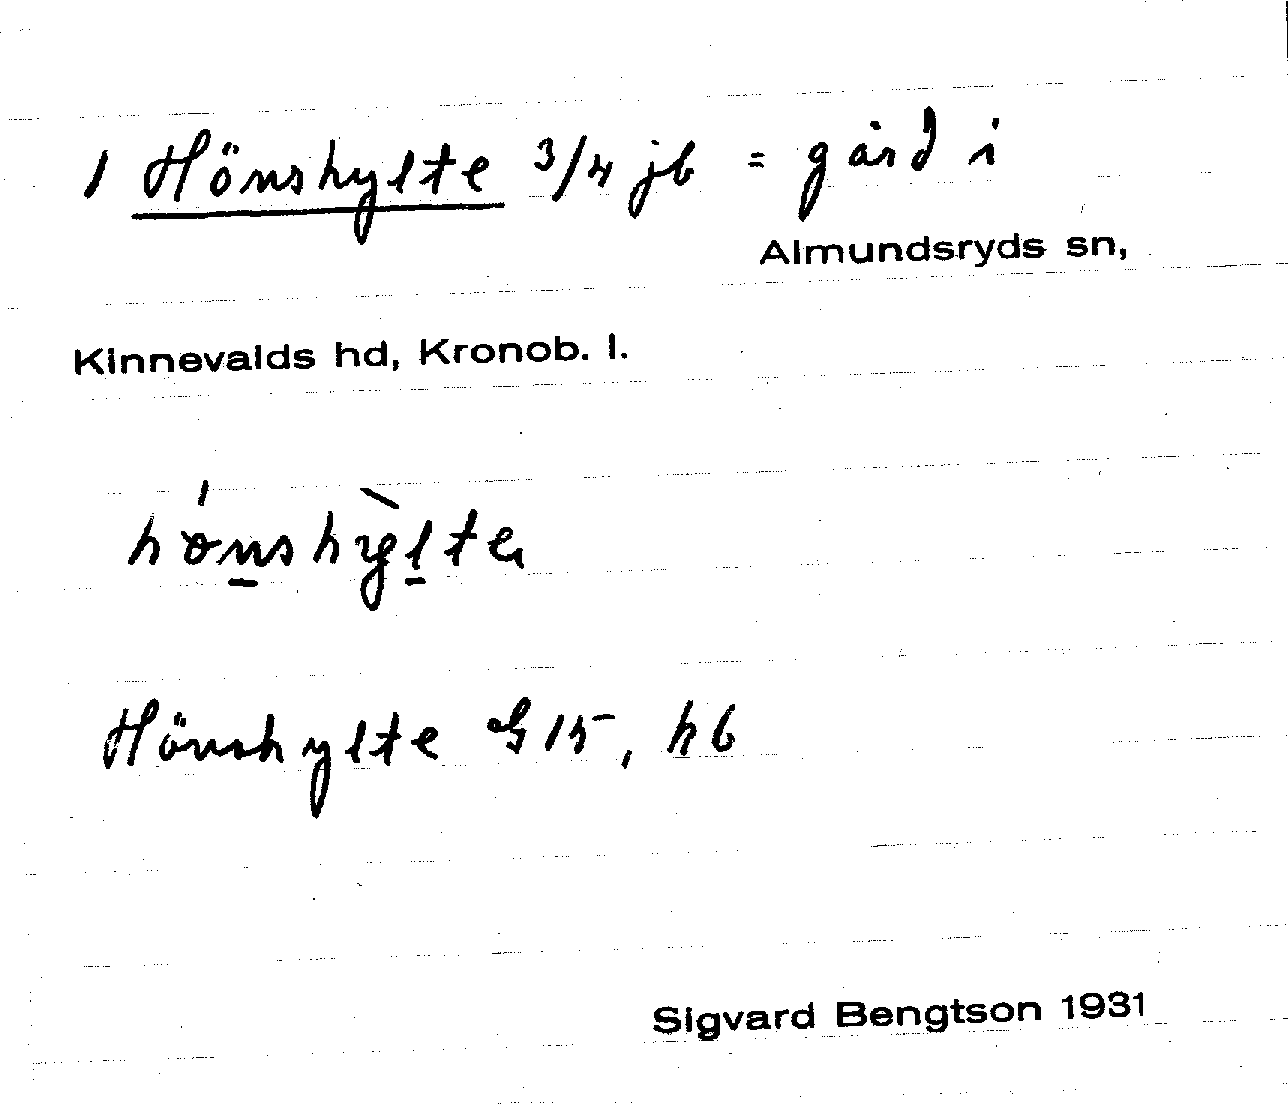 1 Hönshylte 3/4 jb = gård i
Almundsryds sn,
Kinnevalds hd, Kronob. l.
hønshyltə
Hönshylte G 15, h6
Sigvard Bengtson 1931